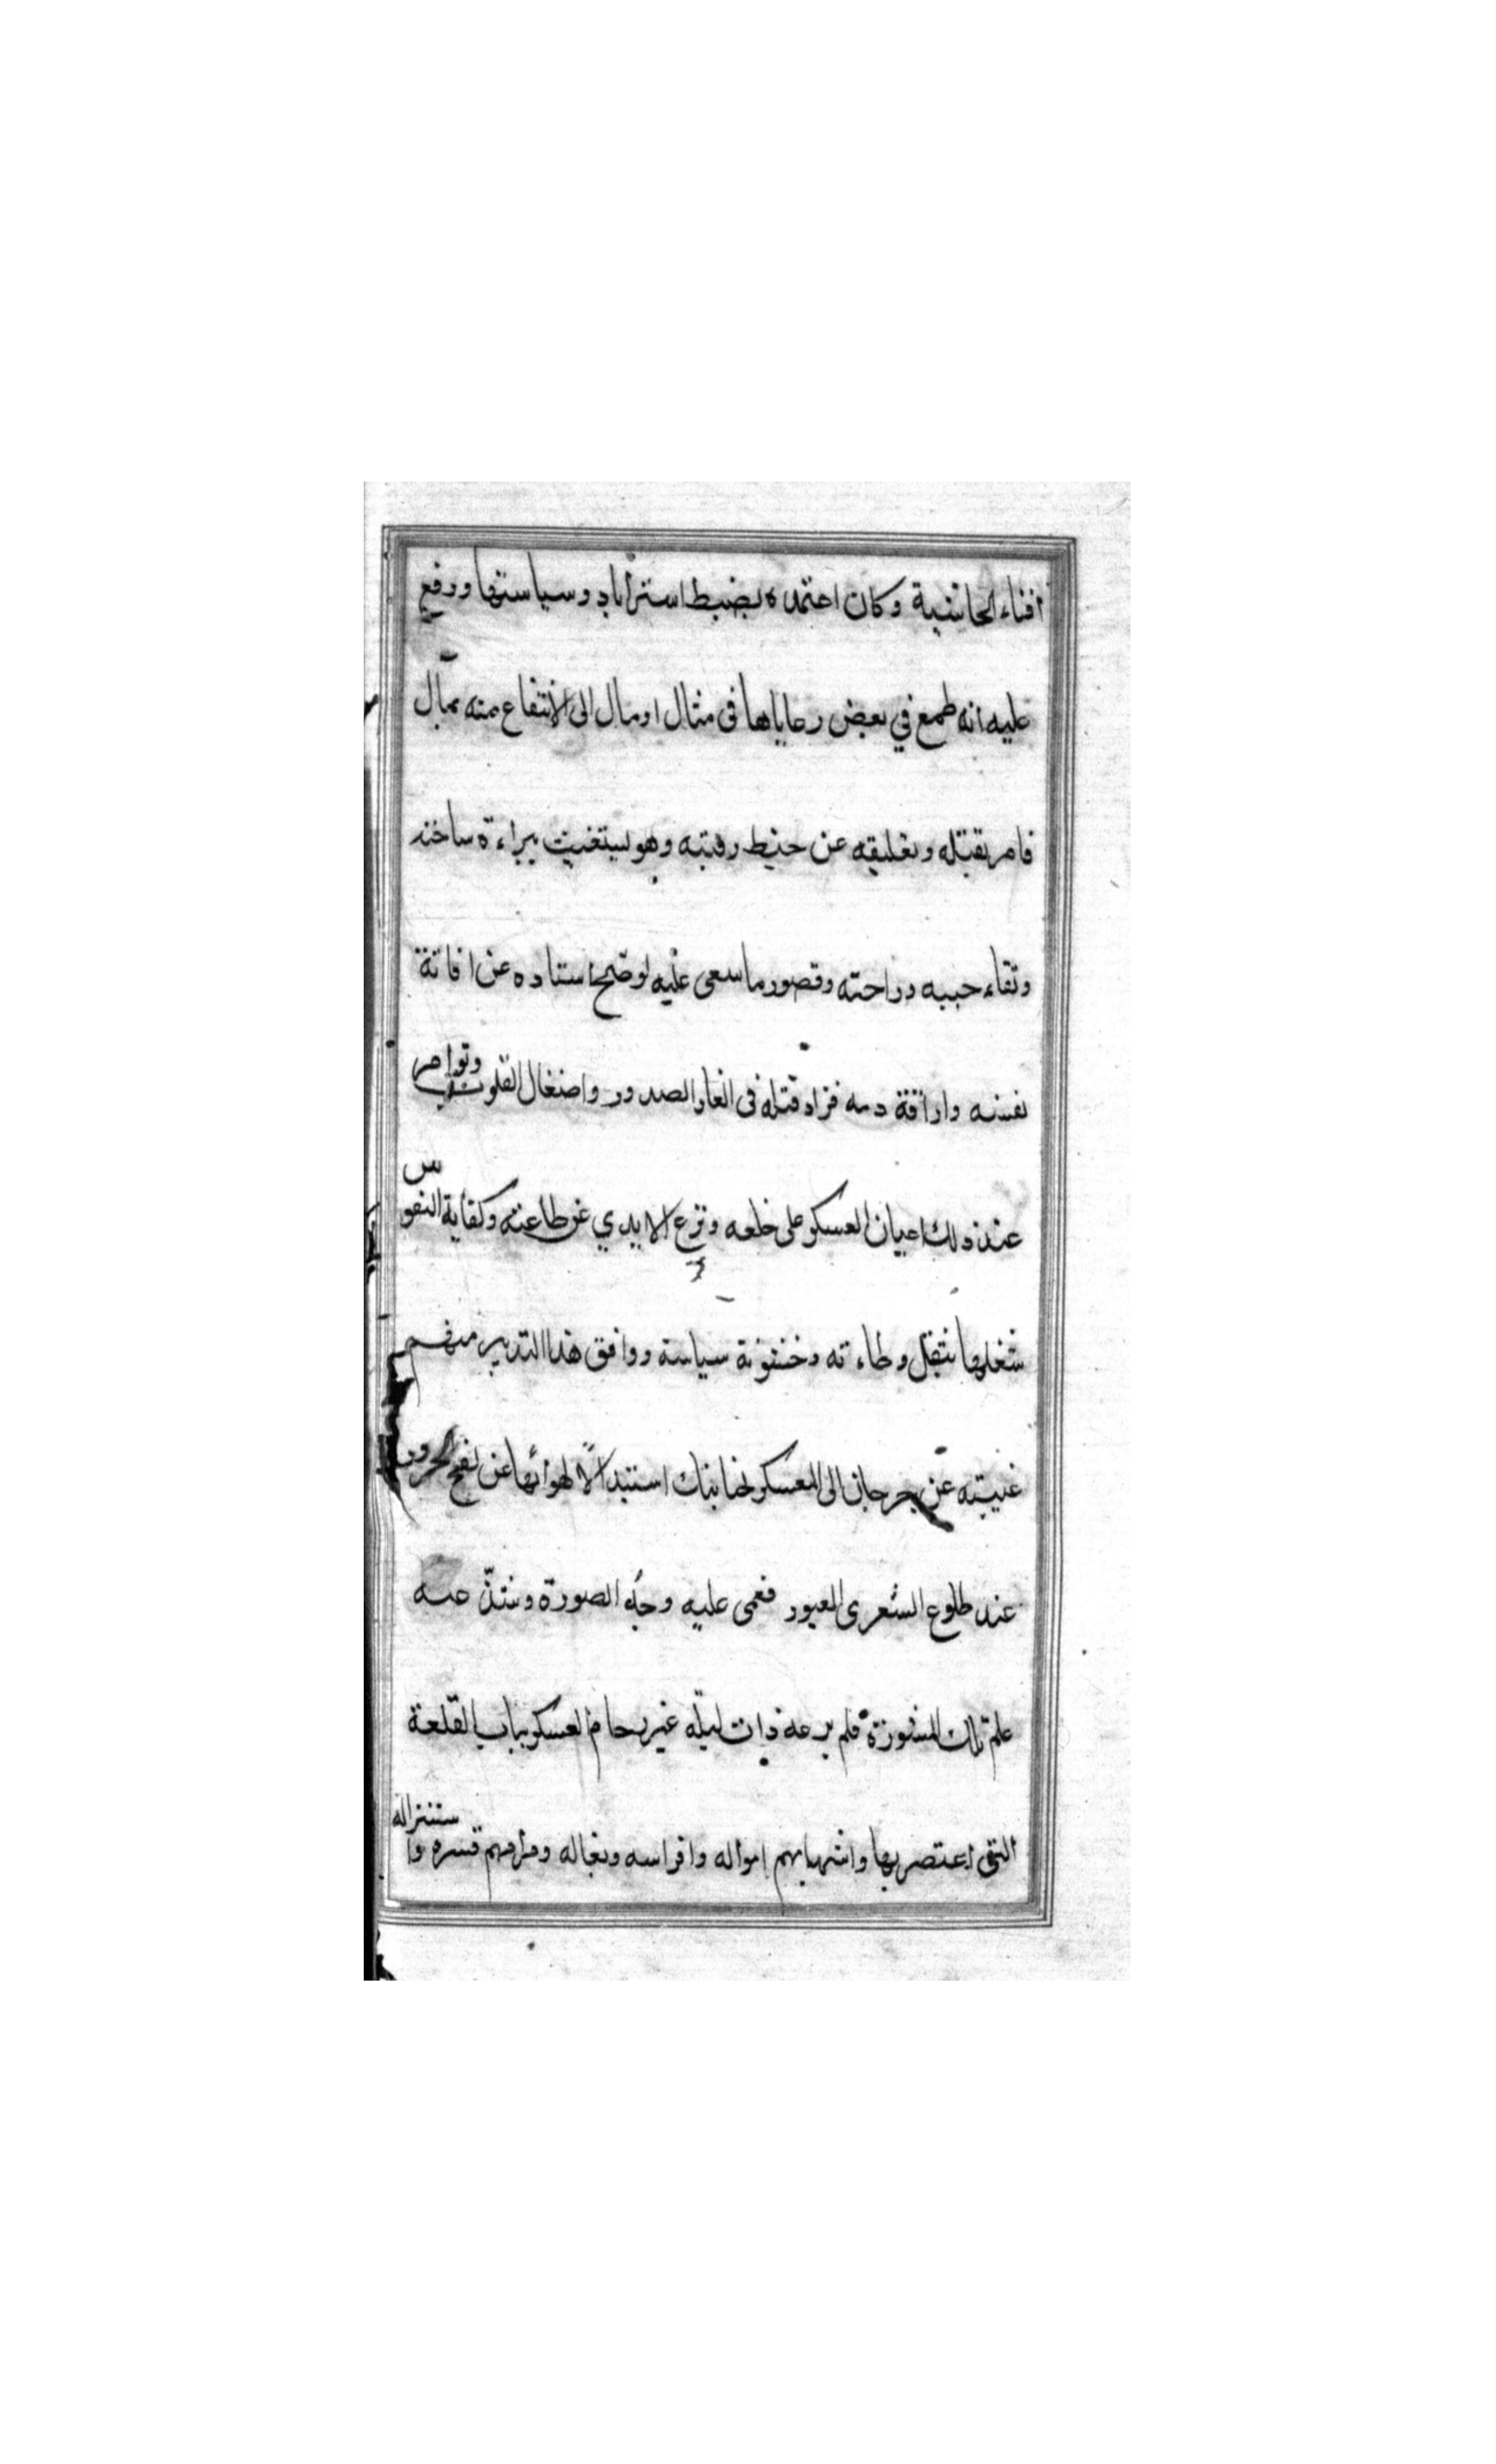 افناء الحاشية وكان اعتمده لضبط استراباد وسياستها ورفع
عليه انه طمع في بعض رعاياها في منال او مال الى الانتفاع منه بمال
فامر بقتله وتعليقه عن حيط رقبته وهو يستغيث ببراءة ساحته
ونقاء جيبه وراحته وقصور ما سعى عليه لو صح استناده عن افاتة
نفسه واراقة دمه فزاد قتله في انغار الصدور واضغال القلوب وتوامر
عند ذلك اعيان العسكر على خلعه ونزع الايدي عن طاعته وكفاية النفوس
شغلها بثقل وطاءته وخشونة سياسة ووافق هذا التدبير منهم
غيبته عن جرجان الى المعسكر بجنابنك استبدالا لهوائها عن لفح الحرور
عند طلوع الشعرى العبور فعمى عليه وجه الصورة وشذ عنه
علم تلك المشورة فلم يرعه ذات ليلة غير زحام العسكر بباب القلعة
التي اعتصر بها وانتهابهم امواله وافراسه وبغاله ومرامهم قسره واستنزاله